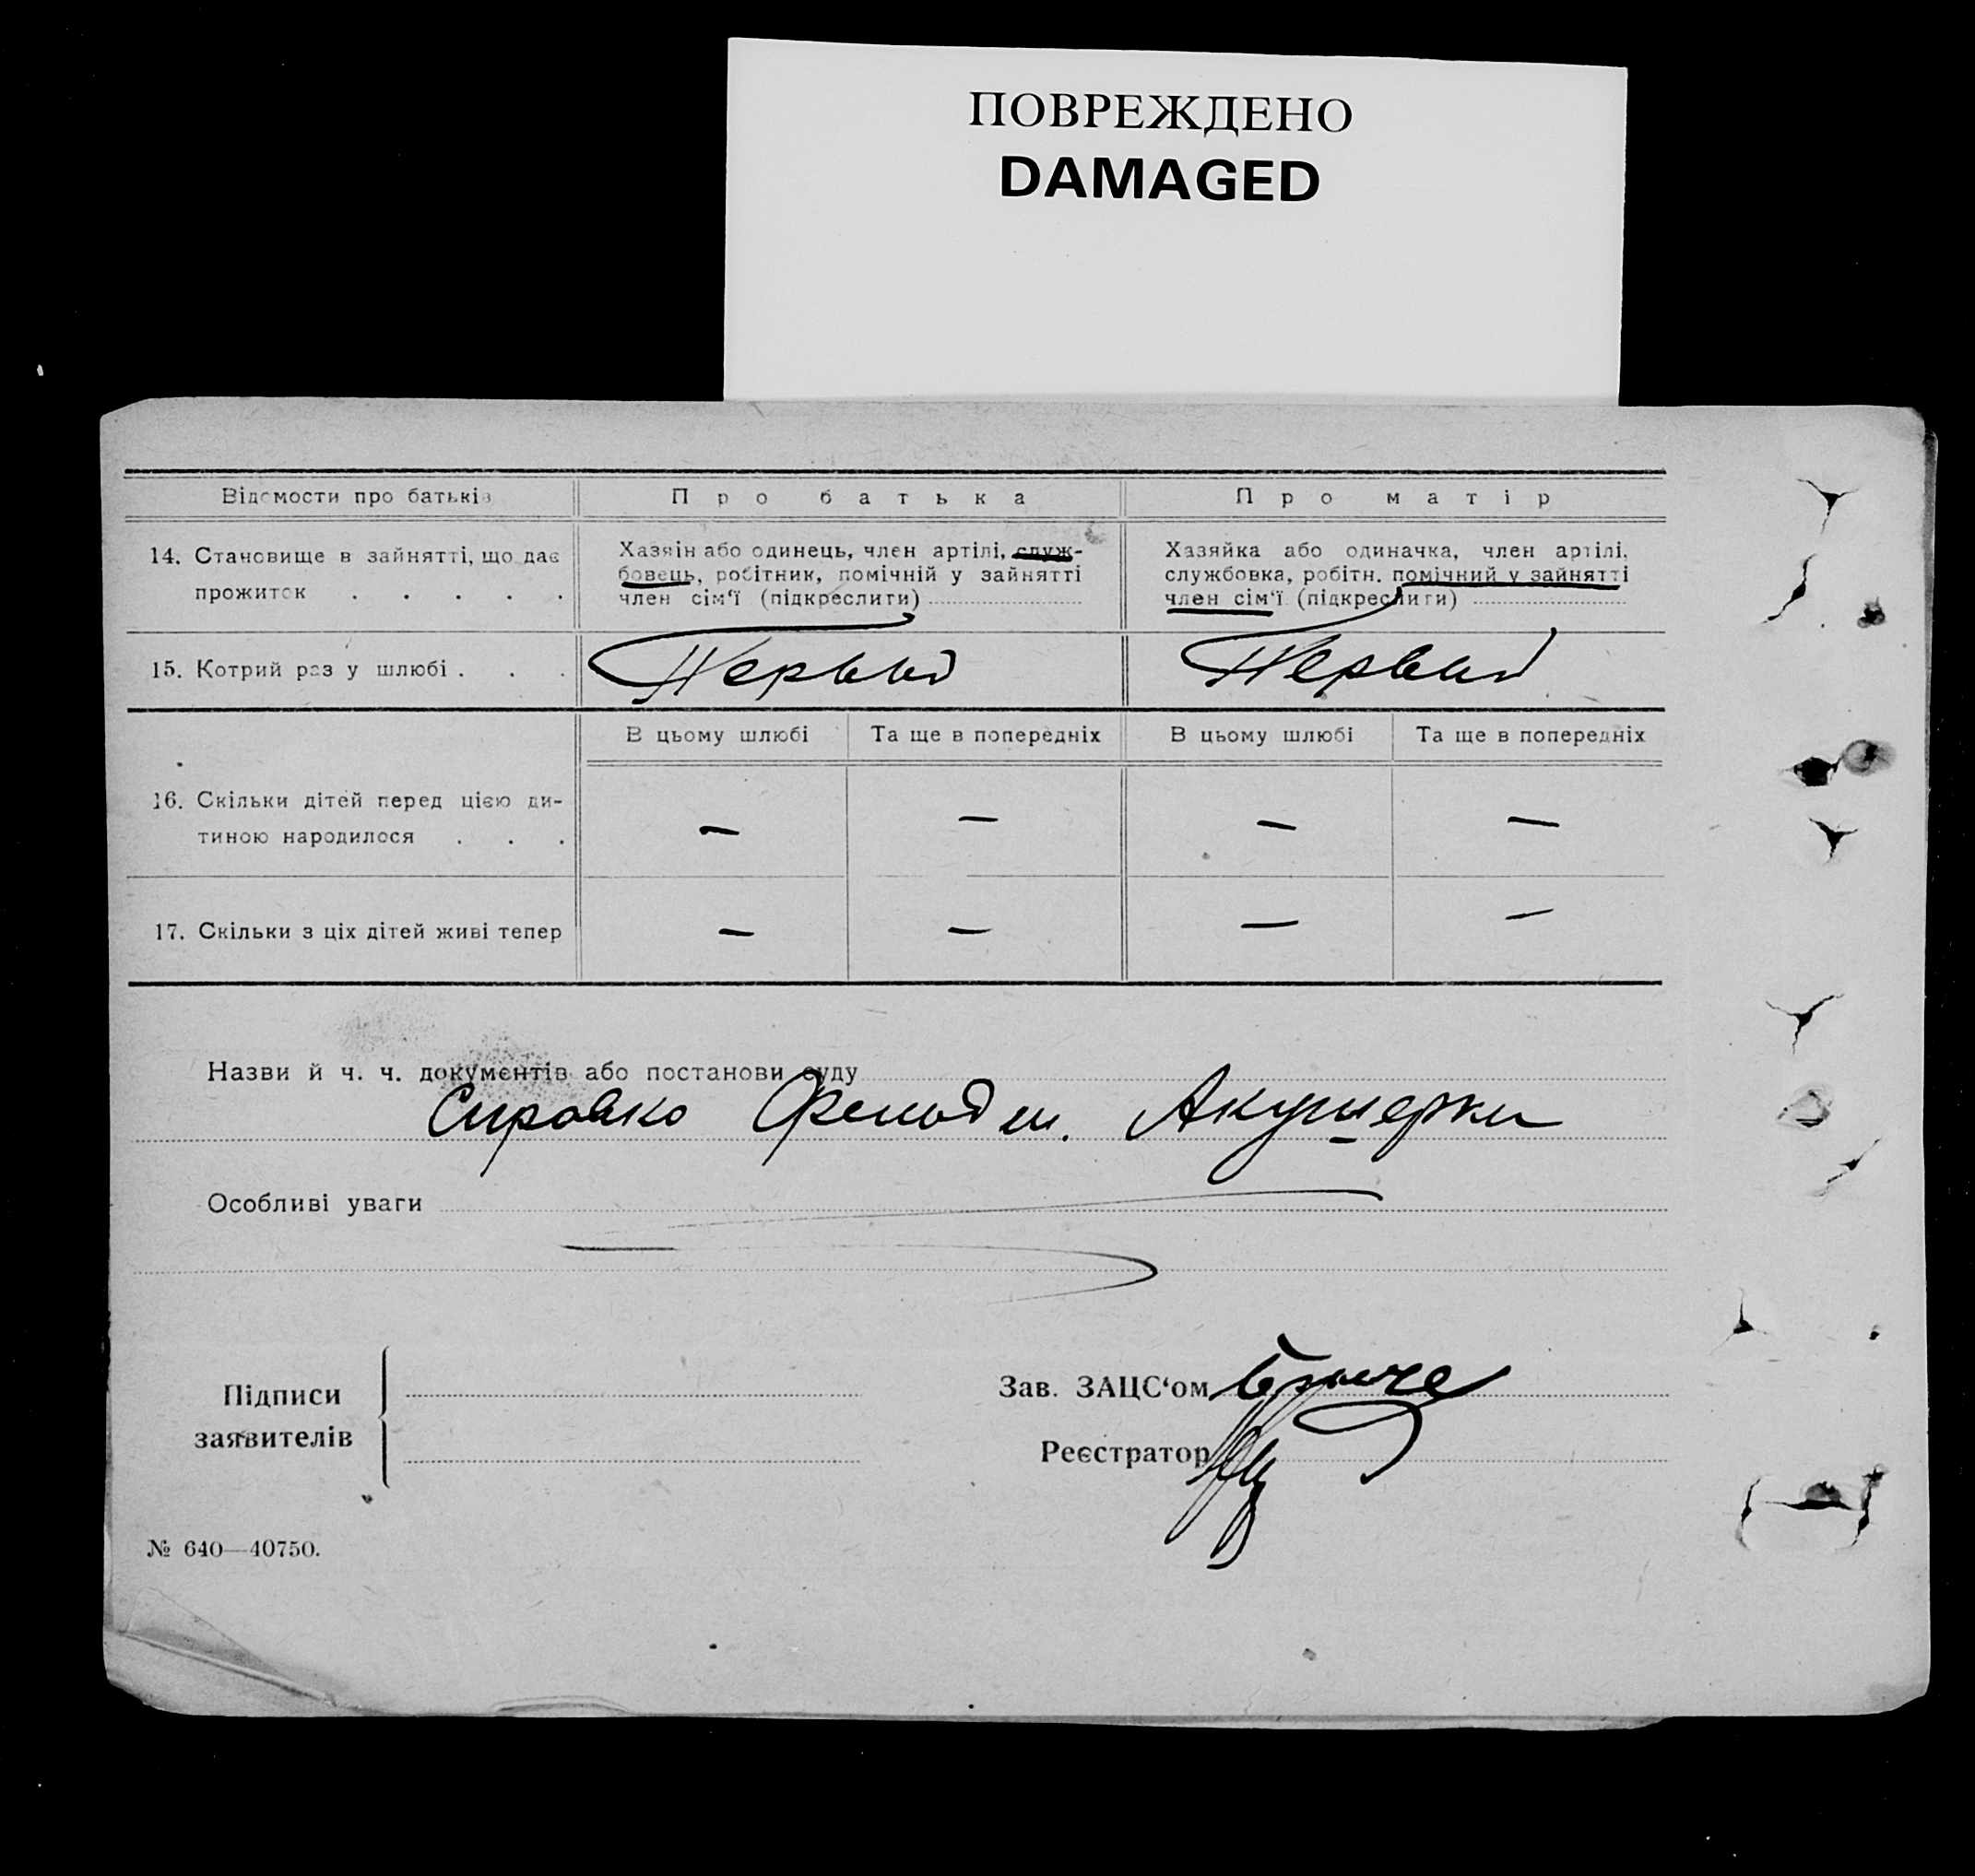 ПОВРЕЖДЕНО
DAMAGED
Відомости про батьків
Про батька
Про матір
14. Становище в зайнятті, що дає
прожиток . . . . .
Хазяін або одинець, член артілі, служ-
бовець, робітник, помічній у зайнятті
член сім‘ї (підкреслити)
Хазяйка або одиначка, член артілі,
службовка, робітн. помічний у зайнятті
член сім‘ї (підкреслити)
15. Котрий раз у шлюбі . . .
Первый
Первый
В цьому шлюбі
Та ще в попередніх
В цьому шлюбі
Та ще в попередніх
16. Скільки дітей перед цією ди-
тиною народилося . . .
— — — —
17. Скільки з ціх дітей живі тепер
— — — —
Назви й ч. ч. документів або постанови суду
Справка Акушерки
Особливі уваги
Підписи
заявителів
Зав. ЗАЦС‘ом
Реєстратор
№ 640—40750.